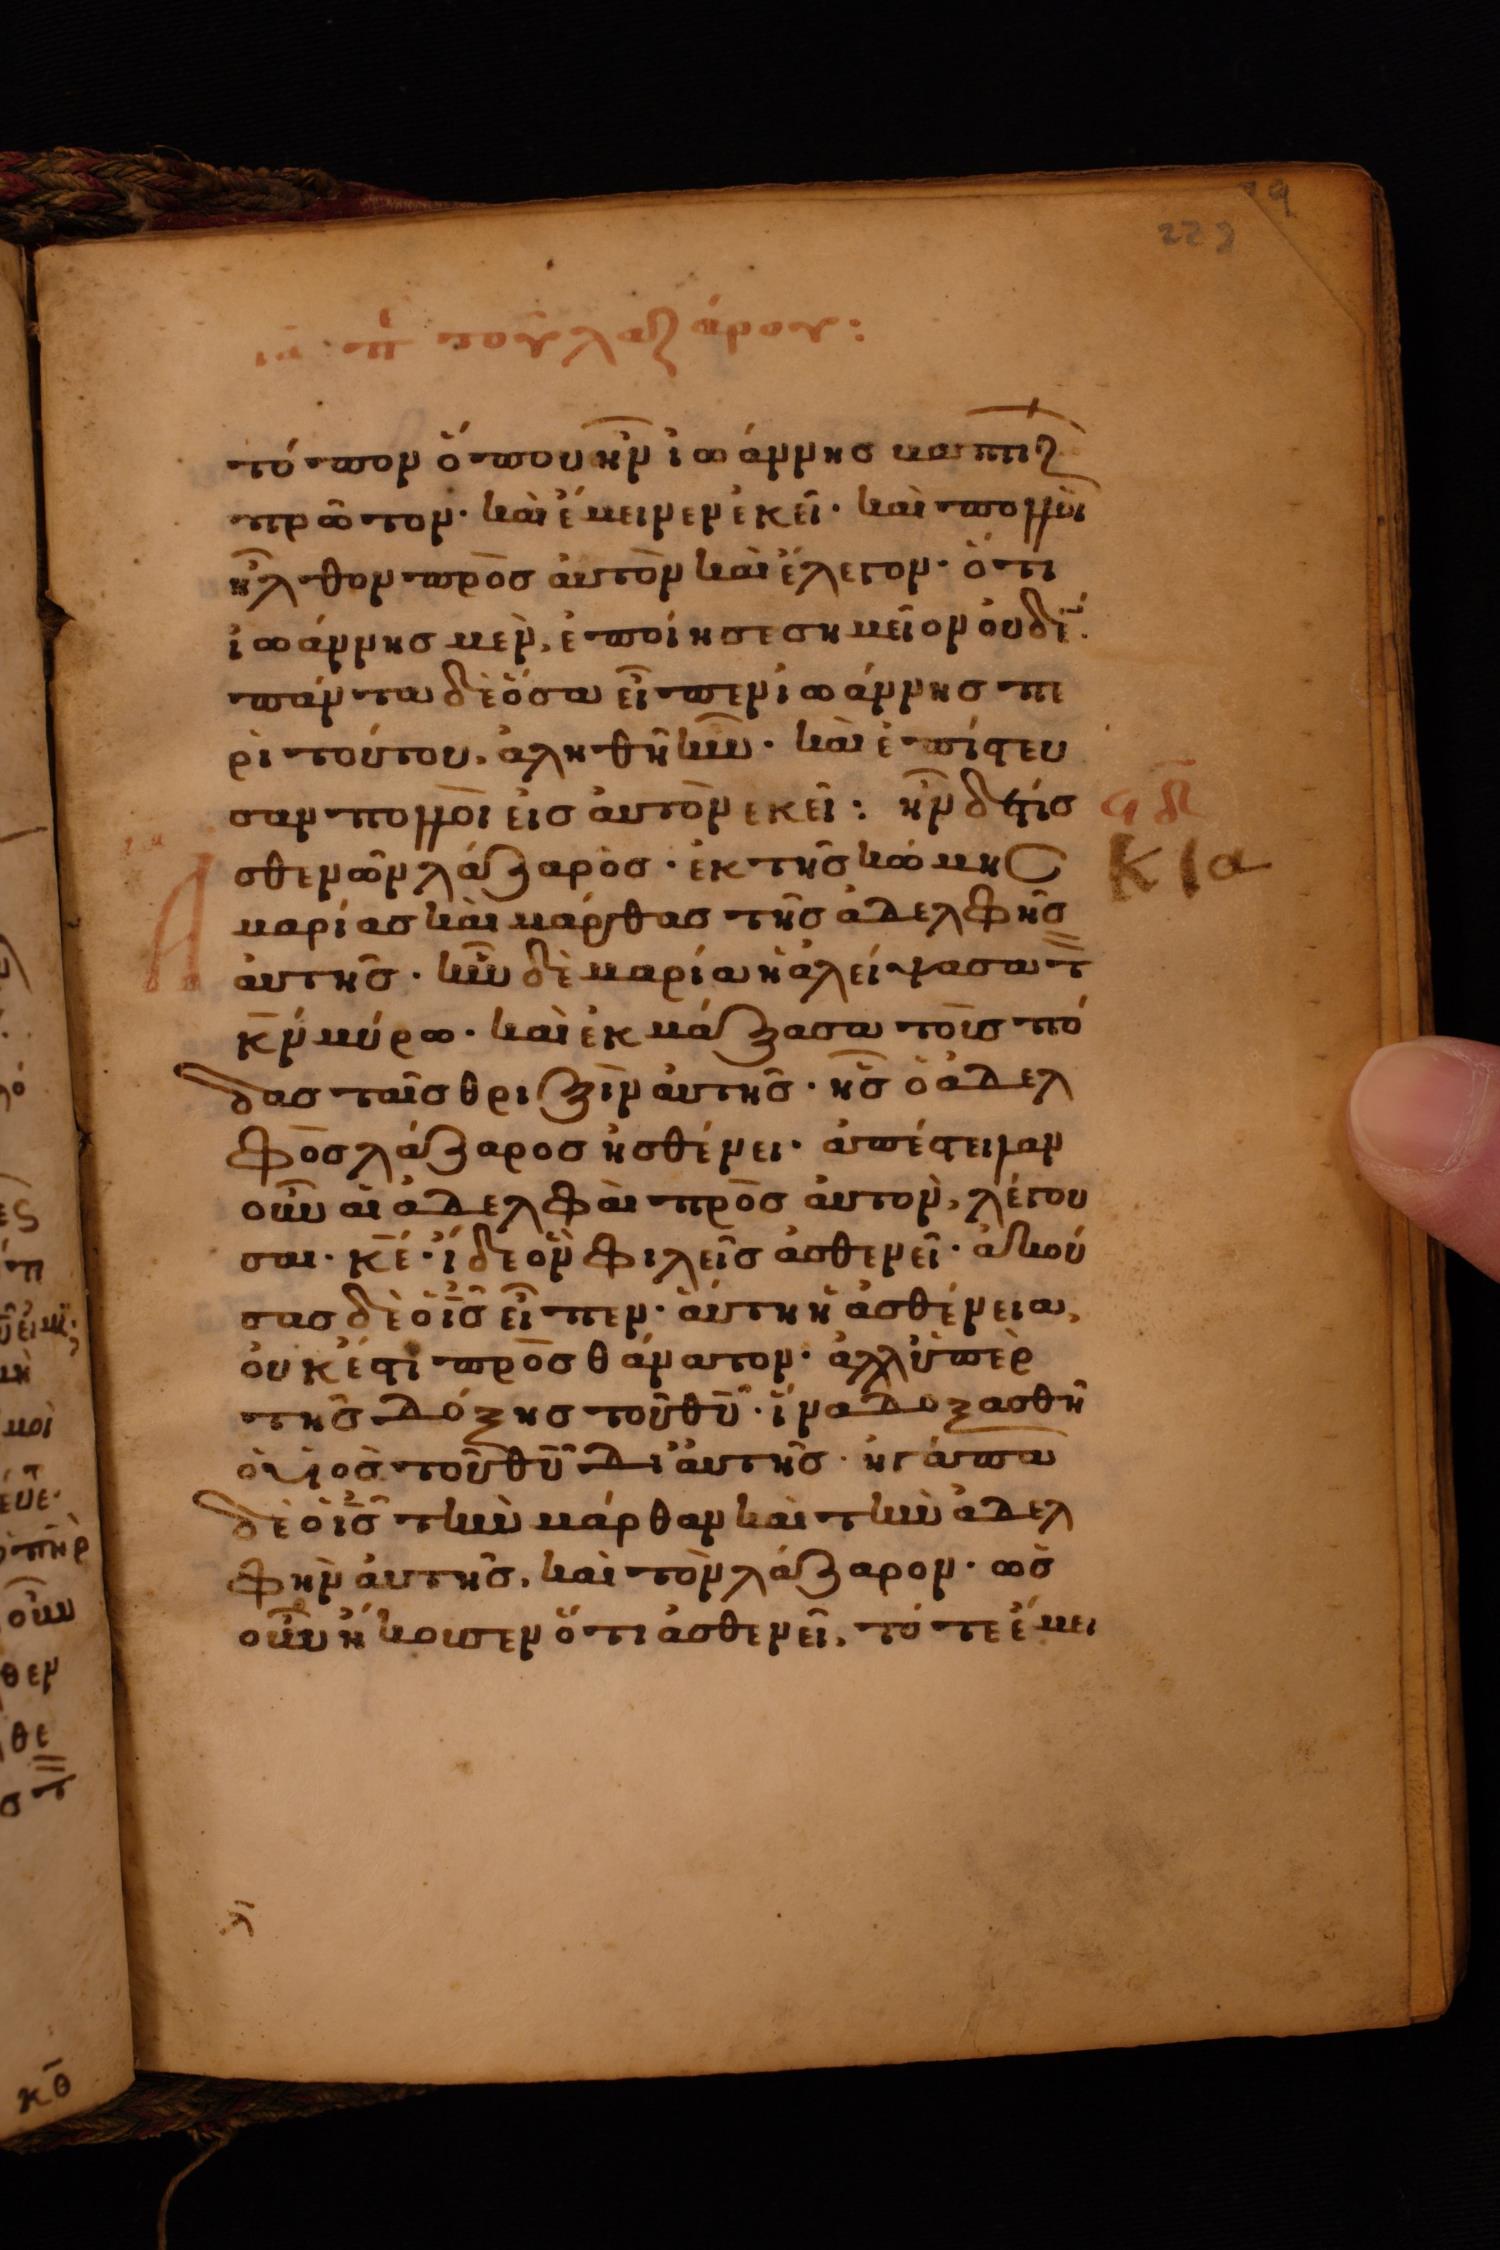 223
ια περὶ τοῦ λαζάρου:
τόπον ὅπου ἦν ἰωάννης βαπτίζ
πρῶτον· καὶ ἔμεινεν ἐκεῖ· καὶ πολλοὶ
ἦλθον πρὸς ἀυτὸν καὶ ἔλεγον· ὅτι
ἰωάννης μὲν, ἐποίησε σημεῖον ὀυδέν.
πάντα δὲ ὅσα εἶπεν ἰωάννης πε
ρὶ τούτου, ἀληθῆ ἦν· καὶ ἐπίστευ
σαν πολλοὶ εἰσ ἀυτὸν εκεῖ: ἦν δέ τίσ
ϥ δ
σθενῶν λάζαρὸσ· ἐκ τῆς κώμησ
Κ ια
μαρίας καὶ μάρθας τῆς ἀδελφῆς
Α
ἀυτῆς· ἦν δὲ μαρία ἡ ἀλείψασα τ
κ̅ν̅ μύρω· καὶ ἐκμάξασα τοὺς πό
δας ταῖς θριξὶν ἀυτῆς· ἧς ὁ ἀδελ
φὸς λάζαρος ἠσθένει· ἀπέστειλαν
οὖν αἱ ἀδελφαὶ πρὸς ἀυτὸν, λέγου
σαι· κ̅ε̅· ἴδε ὃν φιλεῖς ἀσθενεῖ· ἀκού
σας δὲ ὁ ι̅ς̅ εἶπεν· ἀύτη ἡ ἀσθένεια,
ὀυκ ἔστι πρὸς θάνατον· ἀλλ' ὑπὲρ
τῆς δόξης τοῦ θ̅υ̅· ἵνα δοξασθῆ
ὁ υἱὸς τοῦ θ̅υ̅ δι' ἀυτῆς· ἠγάπα
δὲ ὁ ι̅ς̅ τὴν μάρθαν καὶ τὴν ἀδελ
φὴν ἀυτῆς, καὶ τὸν λάζαρον· ὡς
οὖν ἤκουσεν ὅτι ἀσθενεῖ, τότε ἔμει
λ̅
κ̅θ̅